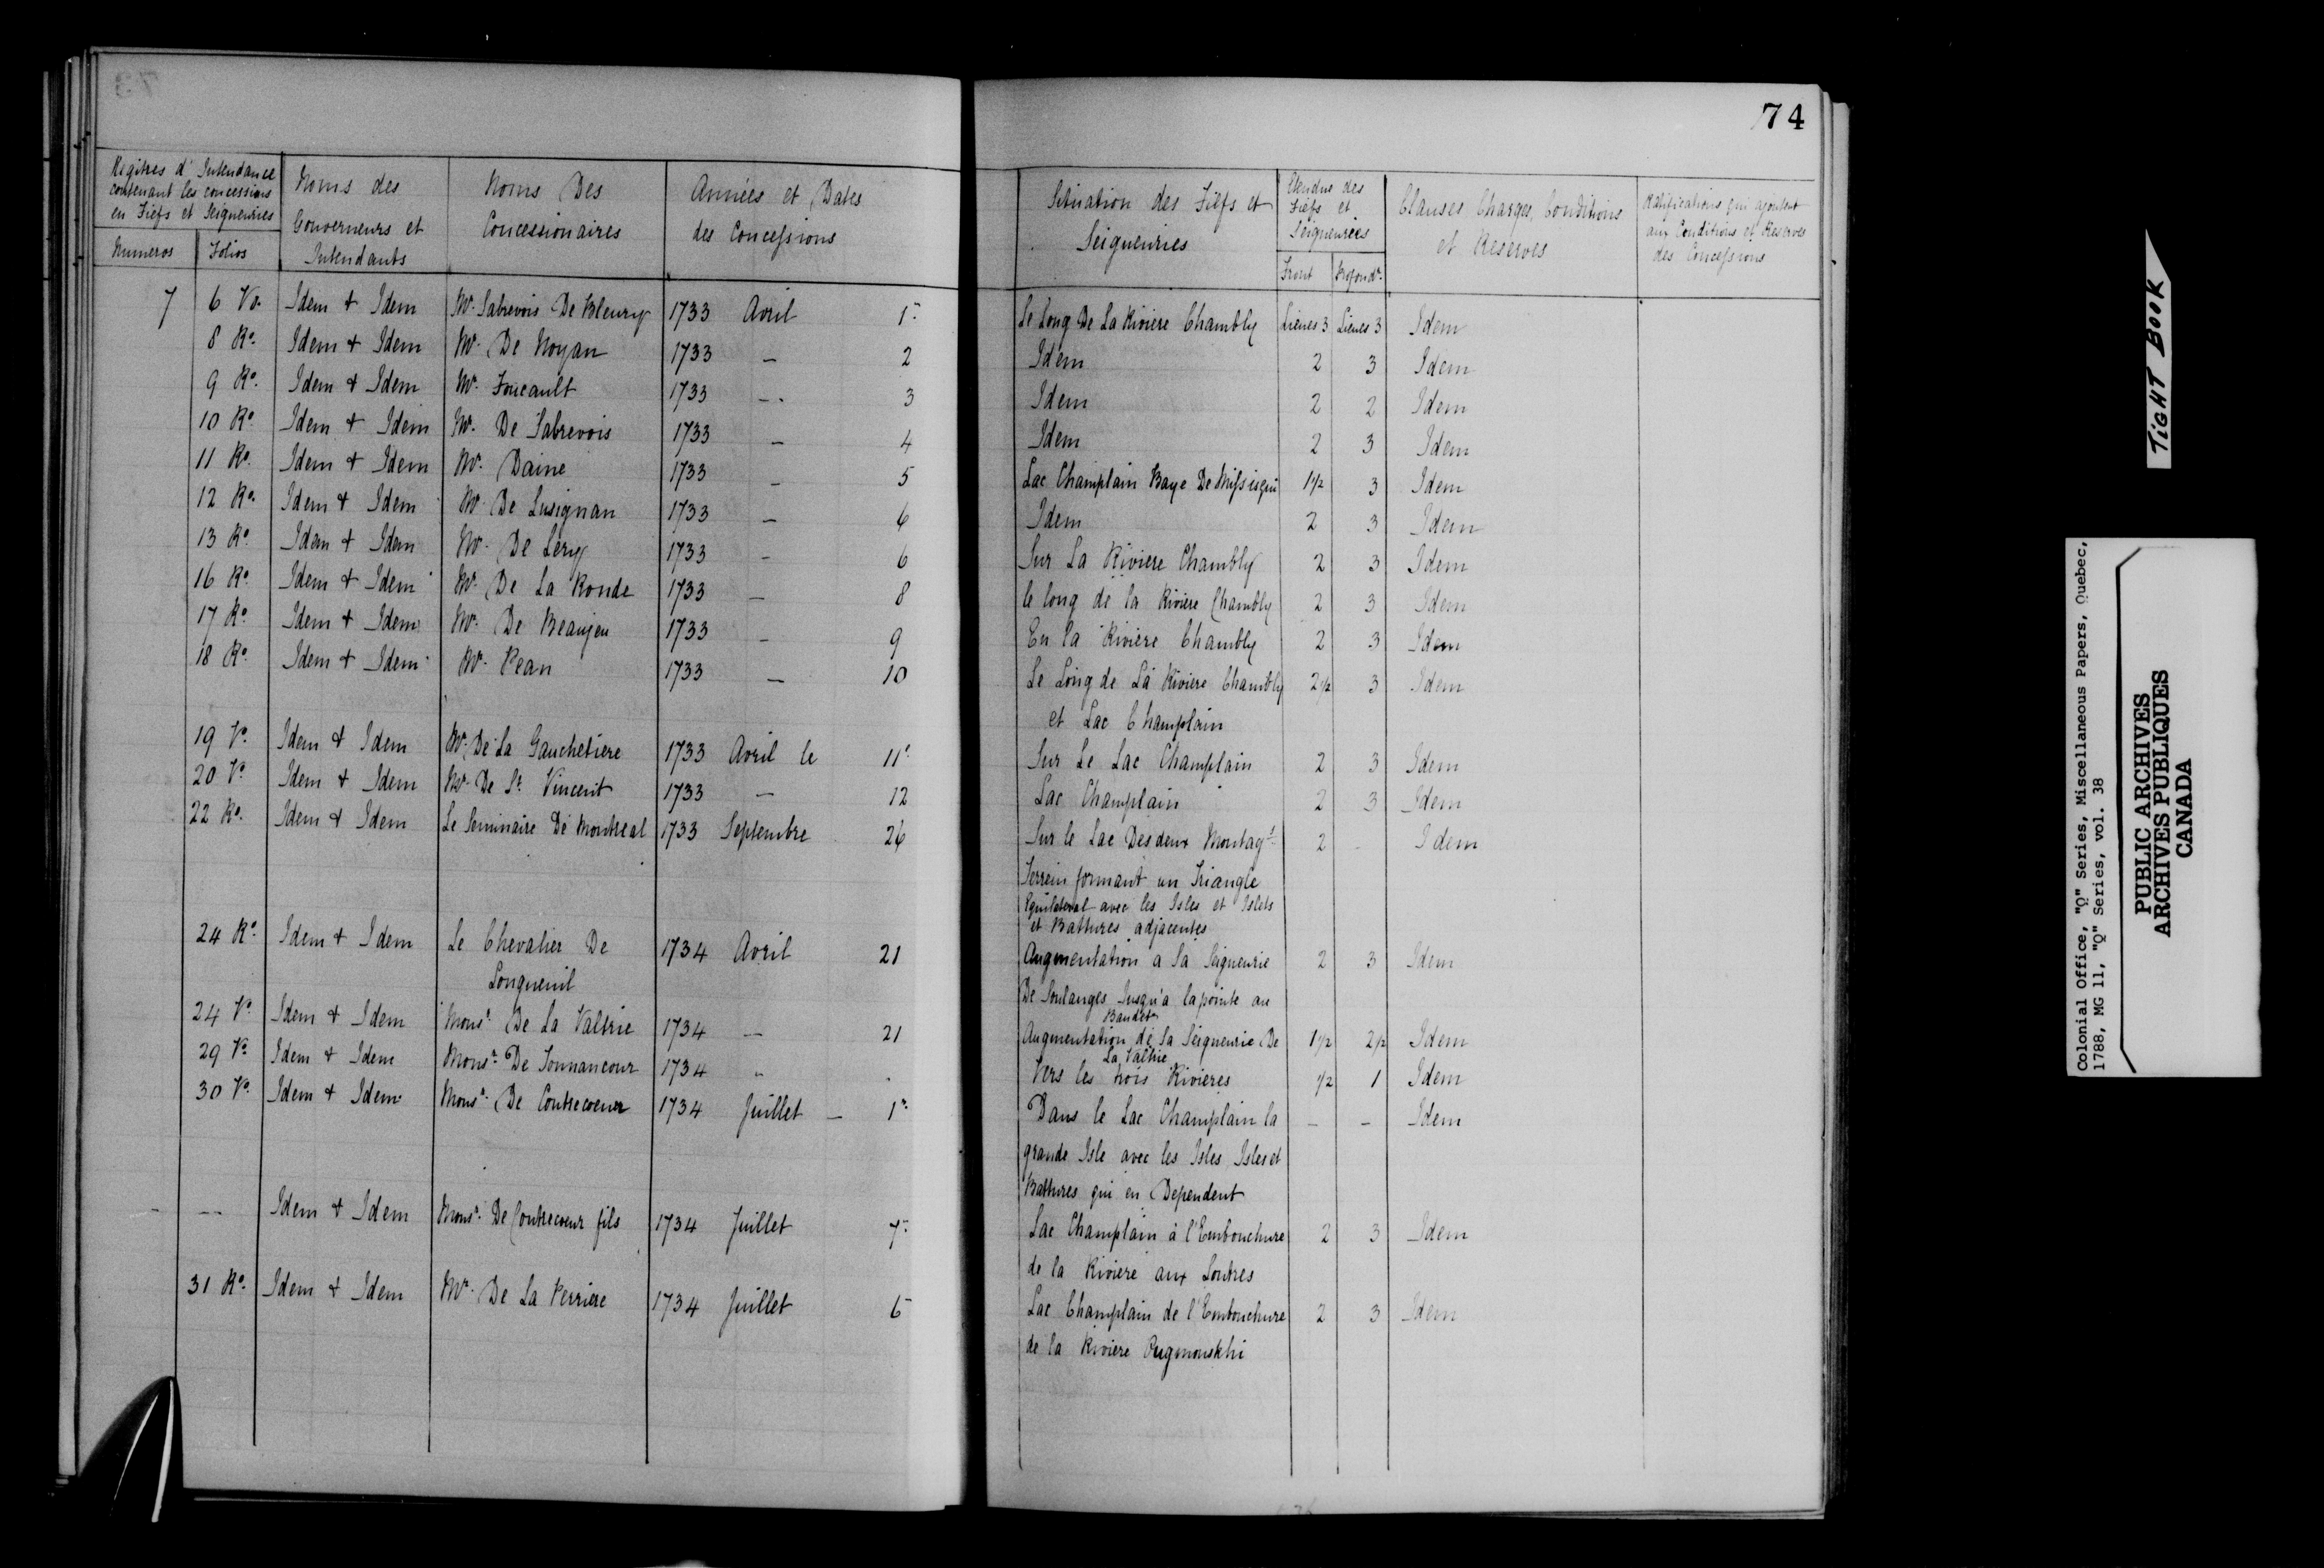 74
Regitres d'Intendance
contenant les concessions
en Fiefs et Seigneuries
Numeros Folios
Noms des
Gouverneurs et
Intendants
Noms Des
Concessionaires
Années et Dates
des Concessions
Situation des Fiefs et
Seigneuries
Etendue des
Fiefs et
Seigneuries
Front Profondr.
Clauses, Charges, Conditions
et Reserves
Ratifications qui ajoutent
aux Conditions et Reserves
des Concessions
7 6 Vo. Idem & Idem Mr. Sabrevois De Bleury 1733 Avril 1r Le Long De La Riviere Chambly Lieues 3 Lieues 3 Idem
8 Ro. Idem & Idem Mr. De Noyan 1733 — 2 Idem 2 3 Idem
9 Ro. Idem & Idem Mr. Foucault 1733 — 3 Idem 2 2 Idem
10 Ro. Idem & Idem Mr. De Sabrevois 1733 — 4 Idem 2 3 Idem
11 Ro. Idem & Idem Mr. Daine 1733 — 5 Lac Champlain Baye De Missisqui 1 1/2 3 Idem
12 Ro. Idem & Idem Mr. De Lusignan 1733 — 6 Idem 2 3 Idem
13 Ro. Idem & Idem Mr. De Lery 1733 — 6 Sur La Riviere Chambly 2 3 Idem
16 Ro. Idem & Idem Mr. De La Ronde 1733 — 8 le long de la Riviere Chambly 2 3 Idem
17 Ro. Idem & Idem Mr. De Beaujeu 1733 — 9 En la Riviere Chambly 2 3 Idem
18 Ro. Idem & Idem Mr. Pean 1733 — 10 Le Long de La Riviere Chambly 2 1/2 3 Idem
et Lac Champlain
19 Vo. Idem & Idem Mr. De La Gauchetiere 1733 Avril le 11 Sur Le Lac Champlain 2 3 Idem
20 Vo. Idem & Idem Mr. De St. Vincent 1733 — 12 Lac Champlain 2 3 Idem
22 Ro. Idem & Idem Le Seminaire De Montreal 1733 Septembre 26 Sur le Lac Des deux Montags. 2 - Idem
Terrein formant un Triangle
Equilateral avec les Isles et Islets
et Battures adjacentes
24 Ro. Idem & Idem Le Chevalier De 1734 Avril 21 Augmentation a Sa Seigneurie 2 3 Idem
Longueuil De Soulanges Jusqu'a la pointe au
Baudet
24 Vo. Idem & Idem Monsr. De La Valtrie 1734 — 21 Augmentation de Sa Seigneurie De 1 1/2 2 1/2 Idem
La Valtrie
29 Vo. Idem & Idem Monsr. De Tonnancour 1734 Vers les trois Rivieres 1/2 1 Idem
30 Vo. Idem & Idem Monsr. De Contrecoeur 1734 Juillet — 1r. Dans le Lac Champlain la — — Idem
grande Isle avec les Isles, Isles et
Battures qui en Dependent
- -- Idem & Idem Monsr. De Contrecoeur fils 1734 Juillet 7 Lac Champlain à l'Embouchure 2 3 Idem
de la Riviere aux Loutres
31 Ro. Idem & Idem Mr. De La Perriere 1734 Juillet 6 Lac Champlain de l'Embouchure 2 3 Idem
de la Riviere
TIGHT BOOK
Colonial Office, "Q" Series, Miscellaneous Papers, Quebec,
1788, MG 11, "Q" Series, vol. 38
PUBLIC ARCHIVES
ARCHIVES PUBLIQUES
CANADA